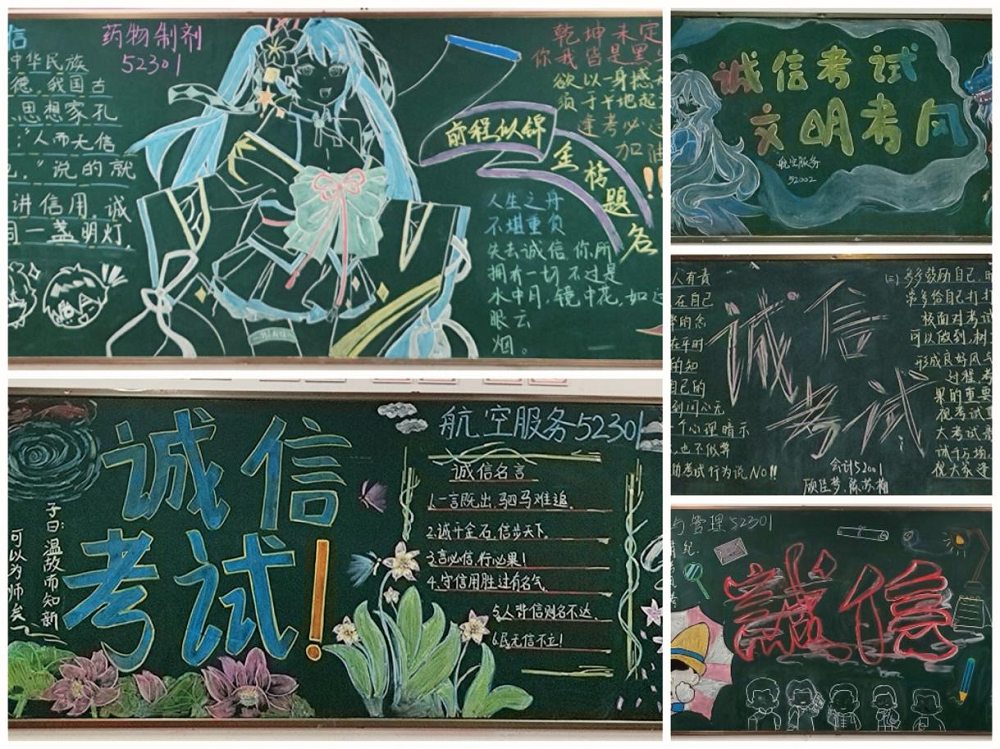 信
中华民族
德,我国古
思想家孔
:"人而无信
"说的就
讲信用,诚
同一盏明灯,
药物制剂
52301
乾坤未定
你我皆是黑
欲以一身撼
须于平地起
逢考必过
加油!!
前程似锦
金榜题名
人生之舟
不堪重负
失去诚信,你所
拥有一切,不过是
水中月,镜中花,如过
眼云
烟。
诚信考试
文明考风
航空服务
52002
人有责
在自己
在平时
的知
自己的
个心理暗示
也不做弊
考试行为说NO!!
诚信
考试
会计52001
(二)多多鼓励自己,
常多给自己打
可以做到,树
形成良好风气
过程,考
果的重要
大考试
诚信
考试!
子曰:温故而知新
可以为师矣
航空服务52301
诚信名言
1.一言既出,驷马难追。
2.诚开金石,信步天下。
3.言必信,行必果!
4.守信用胜过有名气
5.人背信则名不达.
6.民无信不立!
与管理52301
誠信